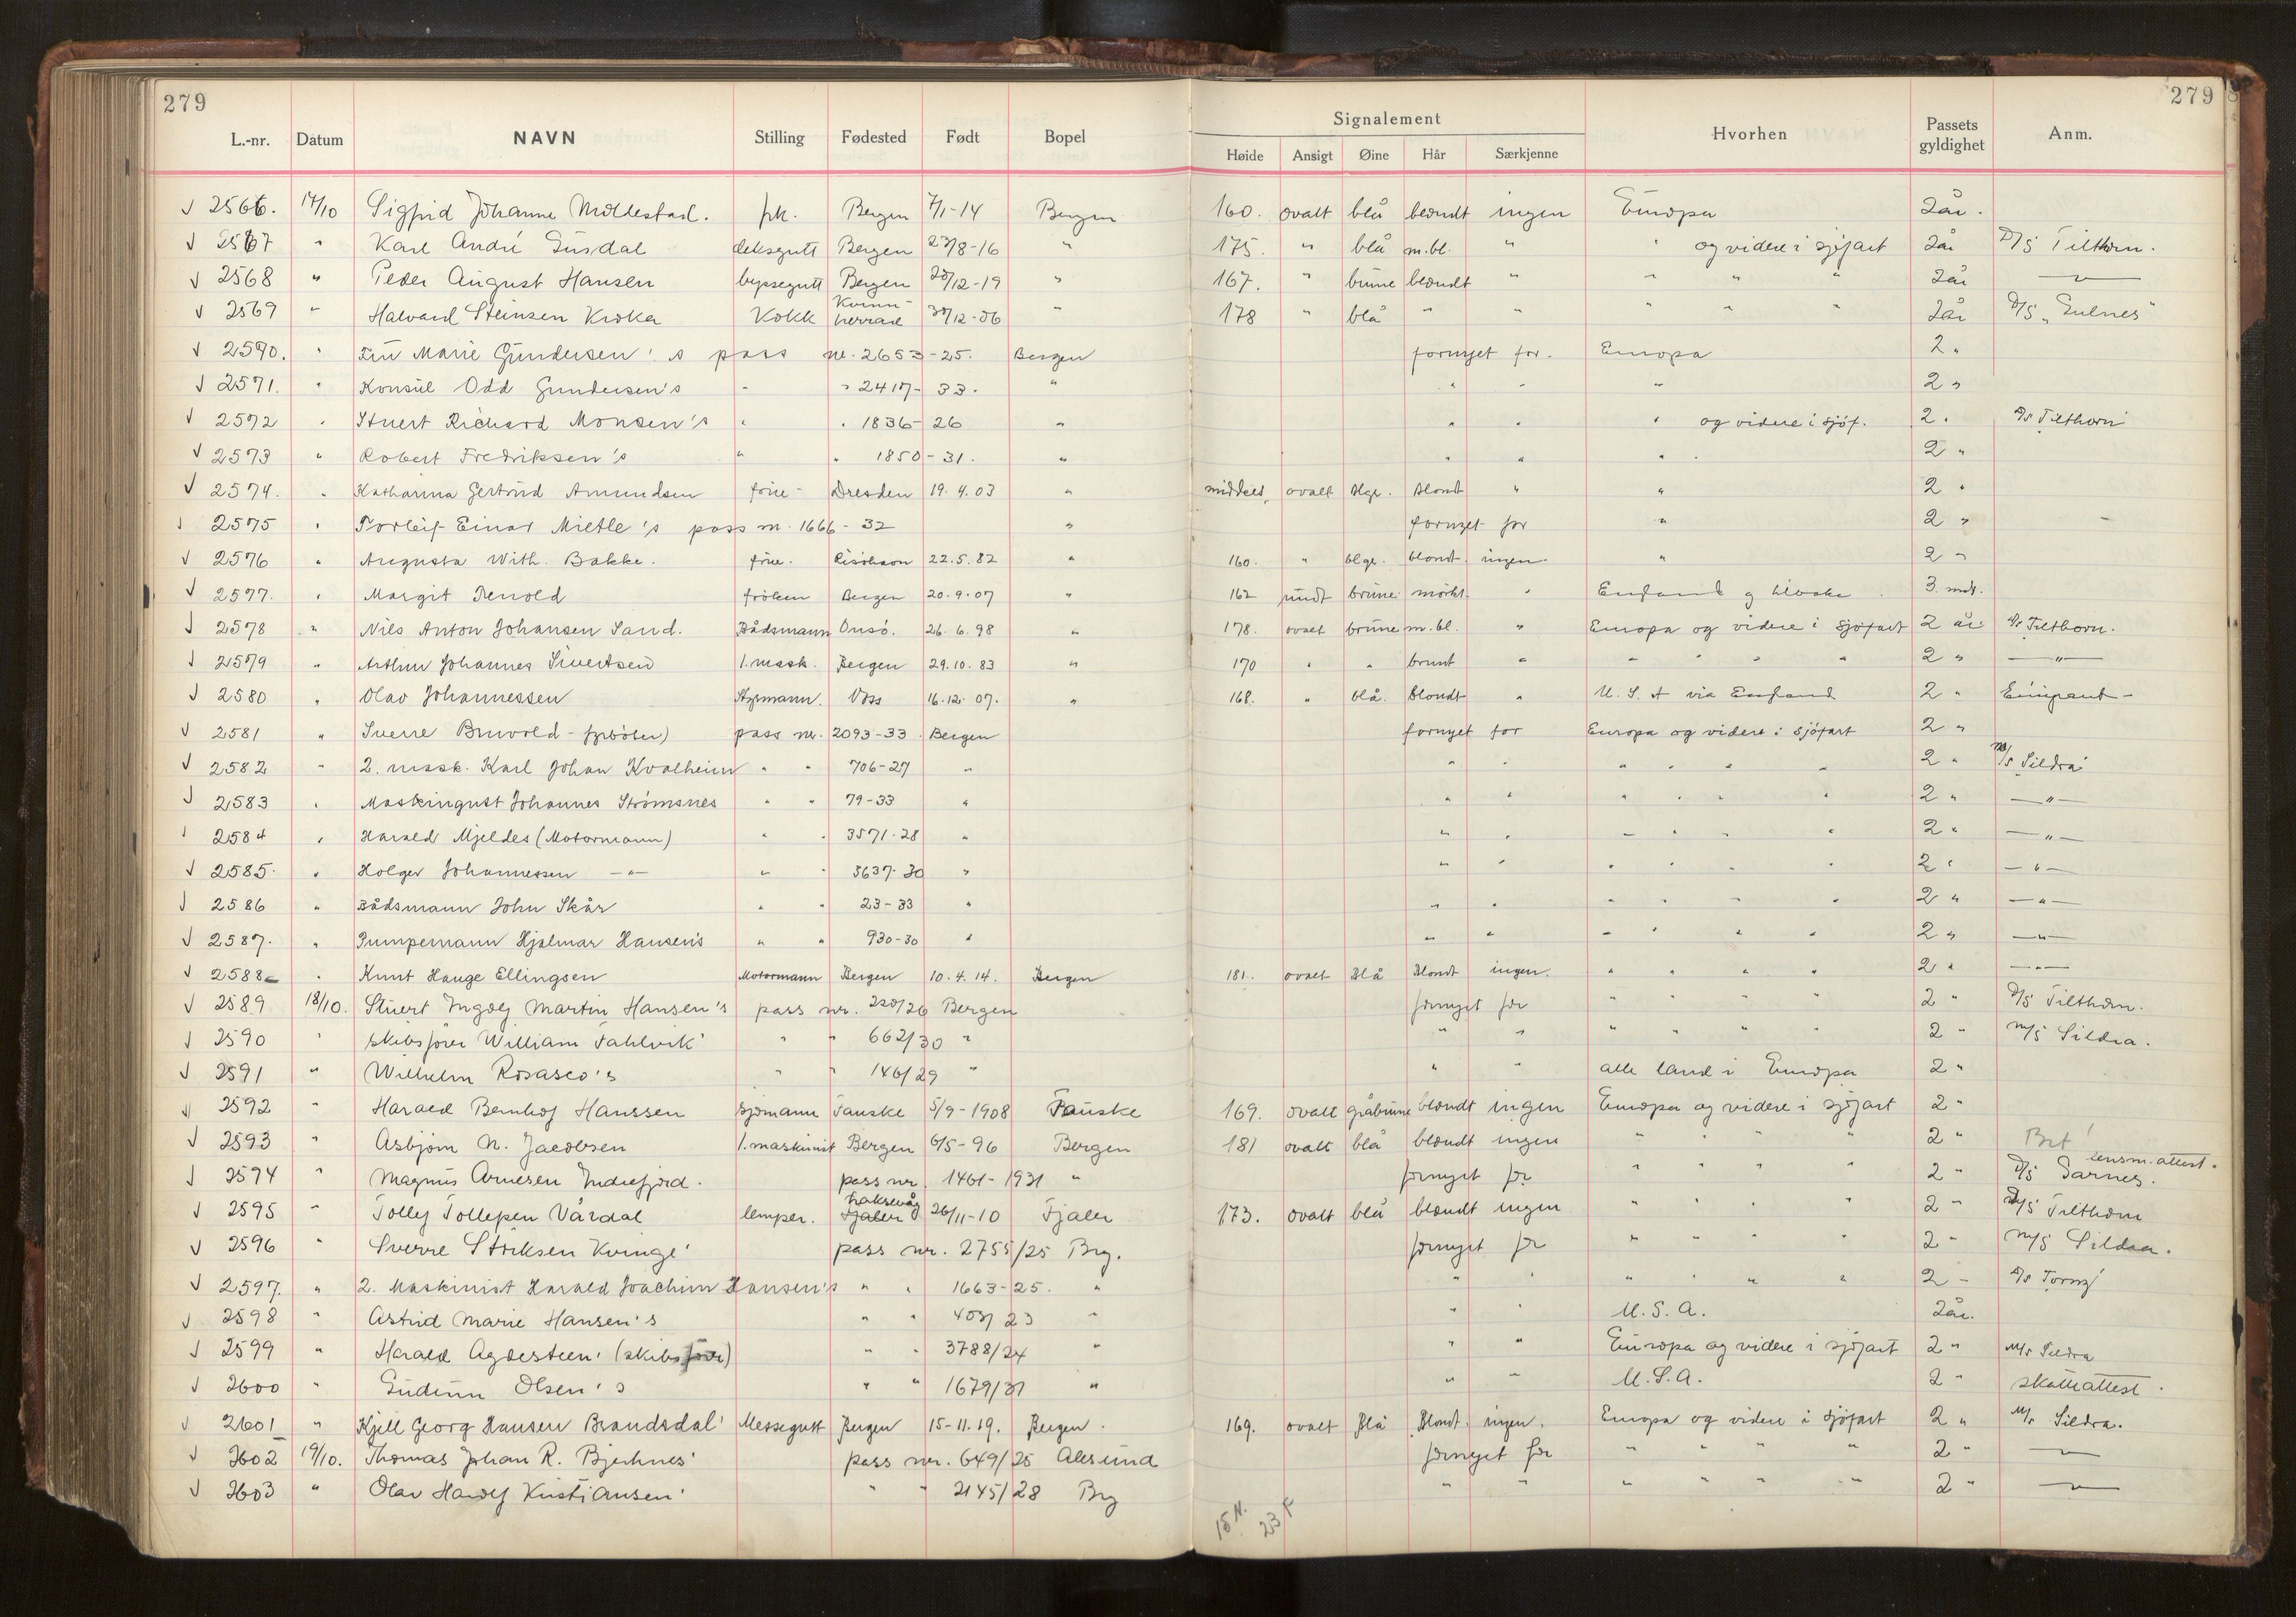 279 279
Signalement
L.-nr. Datum NAVN Stilling Fødested Født Bopel Høide Ansigt Øine Hår Særkjenne Hvorhen Passets gyldighet Anm.
√ 2566. 17/10 Sigfrid Johanne Moldestad. frk. Bergen 7/1-14 Bergen 160. ovalt blå blondt ingen Europa 2 år.
√ 2567 " Karl André Gusdal deksgutt Bergen 23/8-16 " 175. " blå m.bl. " " og videre i sjøfart 2 år D/S Tilthorn.
√ 2568 " Peder August Hansen byssegutt Bergen 28/12-19 " 167. " brune blondt " " " " 2 år —"—
√ 2569 " Halvard Steinsen Kroka Kokk Kvinnherrad 30/12-06 " 178 " blå " " " " " 2 år D/S „Eulnes"
√ 2590. " Fru Marie Gundersen's pass nr. 2653-25. Bergen fornyet for. Europa 2 "
√ 2571. " Konsul Odd Gundersen's " " 2417-33. " " " " 2 "
√ 2572 " Stuert Richard Monsen's " " 1836-26 " " " " og videre i sjøf. 2 " D/S Tilthorn
√ 2573 " Robert Fredriksen's " " 1850-31. " " " " 2 "
√ 2574. " Katharina Gertrud Amundsen frue - Dresden 19.4.03 " middels, ovalt blgr. blond " " 2 "
√ 2575 " Torleif Einar Mietle's pass nr. 1666-32 " fornyet for " 2 "
√ 2576 " Augusta With. Bakke. frue. Risøhavn 22.5.82 " 160. " blgr. blondt. ingen. " 2 "
√ 2577. " Margit Tenold frøken Bergen 20.9.07 " 162 rundt brune mørkt " England g tilbake 3. mdr.
√ 2578 " Nils Anton Johansen Sand. Bådsmann Onsø. 26.6.98 " 178. ovalt brune m.bl. " Europa og videre i sjøfart 2 år D/S Tilthorn.
√ 2579 " Arthur Johannes Sivertsen 1. mask. Bergen 29.10.83 " 170 " " brunt " " " " " 2 " —"—
√ 2580 " Olav Johannessen Styrmann. Voss 16.12.07. " 168. " blå. blondt " U.S.A via England 2 " Emigrant-
√ 2581 " Sverre Bruvold - fyrbøter) pass nr. 2093-33 Bergen fornyet for Europa og videre i sjøfart 2 "
√ 2582 " 2. mask. Karl Johan Kvalheim " " 706-27 " " " " " " " 2 " M/S Sildra
√ 2583 " Maskingust Johannes Strømsnes " " 79-33 " " " " " " " 2 " —"—
√ 2584 " Harald Mjeldes (Motormann) " " 3571-28 " " " " " " " 2 " —"—
√ 2585. " Holger Johannessen —"— " " 3637-30 " " " " " " " 2 " —"—
√ 2586 " Bådsmann John Skår " " 23-33 " " " " " " " 2 " —"—
√ 2587. " Pumpemann Hjalmar Hansen's " " 930-30 " " " " " " " 2 " —"—
√ 2588 " Knut Hauge Ellingsen Motormann Bergen 10.4.14. Bergen 181. ovalt blå blondt ingen. " " " " 2 " —"—
√ 2589 18/10. Stuert Ingolf Martin Hansen's pass nr. 220/26 Bergen fornyet for " " " " 2 " D/S Tilthorn.
√ 2590 " skibsfører William Fahlvik' " " 662/30 " " " " " " " 2 " M/S Sildra.
√ 2591 " Wilhelm Rosasco's " " 146/29 " " " alle land i Europa 2 "
√ 2592 " Harald Bernhof Hanssen sjømann Fauske 5/9-1908 Fauske 169. ovalt gråbrune blondt ingen Europa og videre i sjøfart 2 "
√ 2593 " Asbjørn N. Jacobsen 1. maskinist Bergen 6/5-96 Bergen 181 ovalt blå blondt ingen " " " " 2 " Brt!
√ 2594 " Magnus Arnesen Indrefjord. pass nr. 1461-1931 " fornyet for " " " " 2 " lensm.attest. D/S Garnes.
√ 2595 " Tollef Tollefsen Vårdal lemper. Fjaler Laksevåg 26/11-10 Fjaler 173. ovalt blå blondt ingen " " " " 2 " D/S Tilthorn
√ 2596 " Sverre Storksen Kvinge' pass nr. 2755/25 Brg. fornyet for " " " " 2 " M/S Sildra.
√ 2597. " 2. Maskinist Harald Joachim Hansen's " " 1663-25. " " " " " " " 2 " D/S Torny
√ 2598 " Astrid Marie Hansen's " " 403/23 " " " U.S.A. 2 år.
√ 2599 " Harald Agdesteen' (skibsfører) " " 3788/24 " " " Europa og videre i sjøfart 2 " M/S Sildra
√ 2600 " Gudrun Olsen's " " 1679/31 " " " U.S.A. 2 " skatteattest.
√ 2601 " Kjell Georg Hansen Brandsdal' Messegutt Bergen 15-11.19. Bergen. 169. ovalt blå blondt. ingen. Europa og videre i sjøfart 2 " M/S Sildra.
√ 2602 19/10. Thomas Johan R. Bjerknes' pass nr. 649/25 Ålesund fornyet for " " " " 2 " —"—
√ 2603 " Olav Hardy Kristiansen' " " 2145/28 Brg " " " " " " 2 " —"—
15 N. 23 F